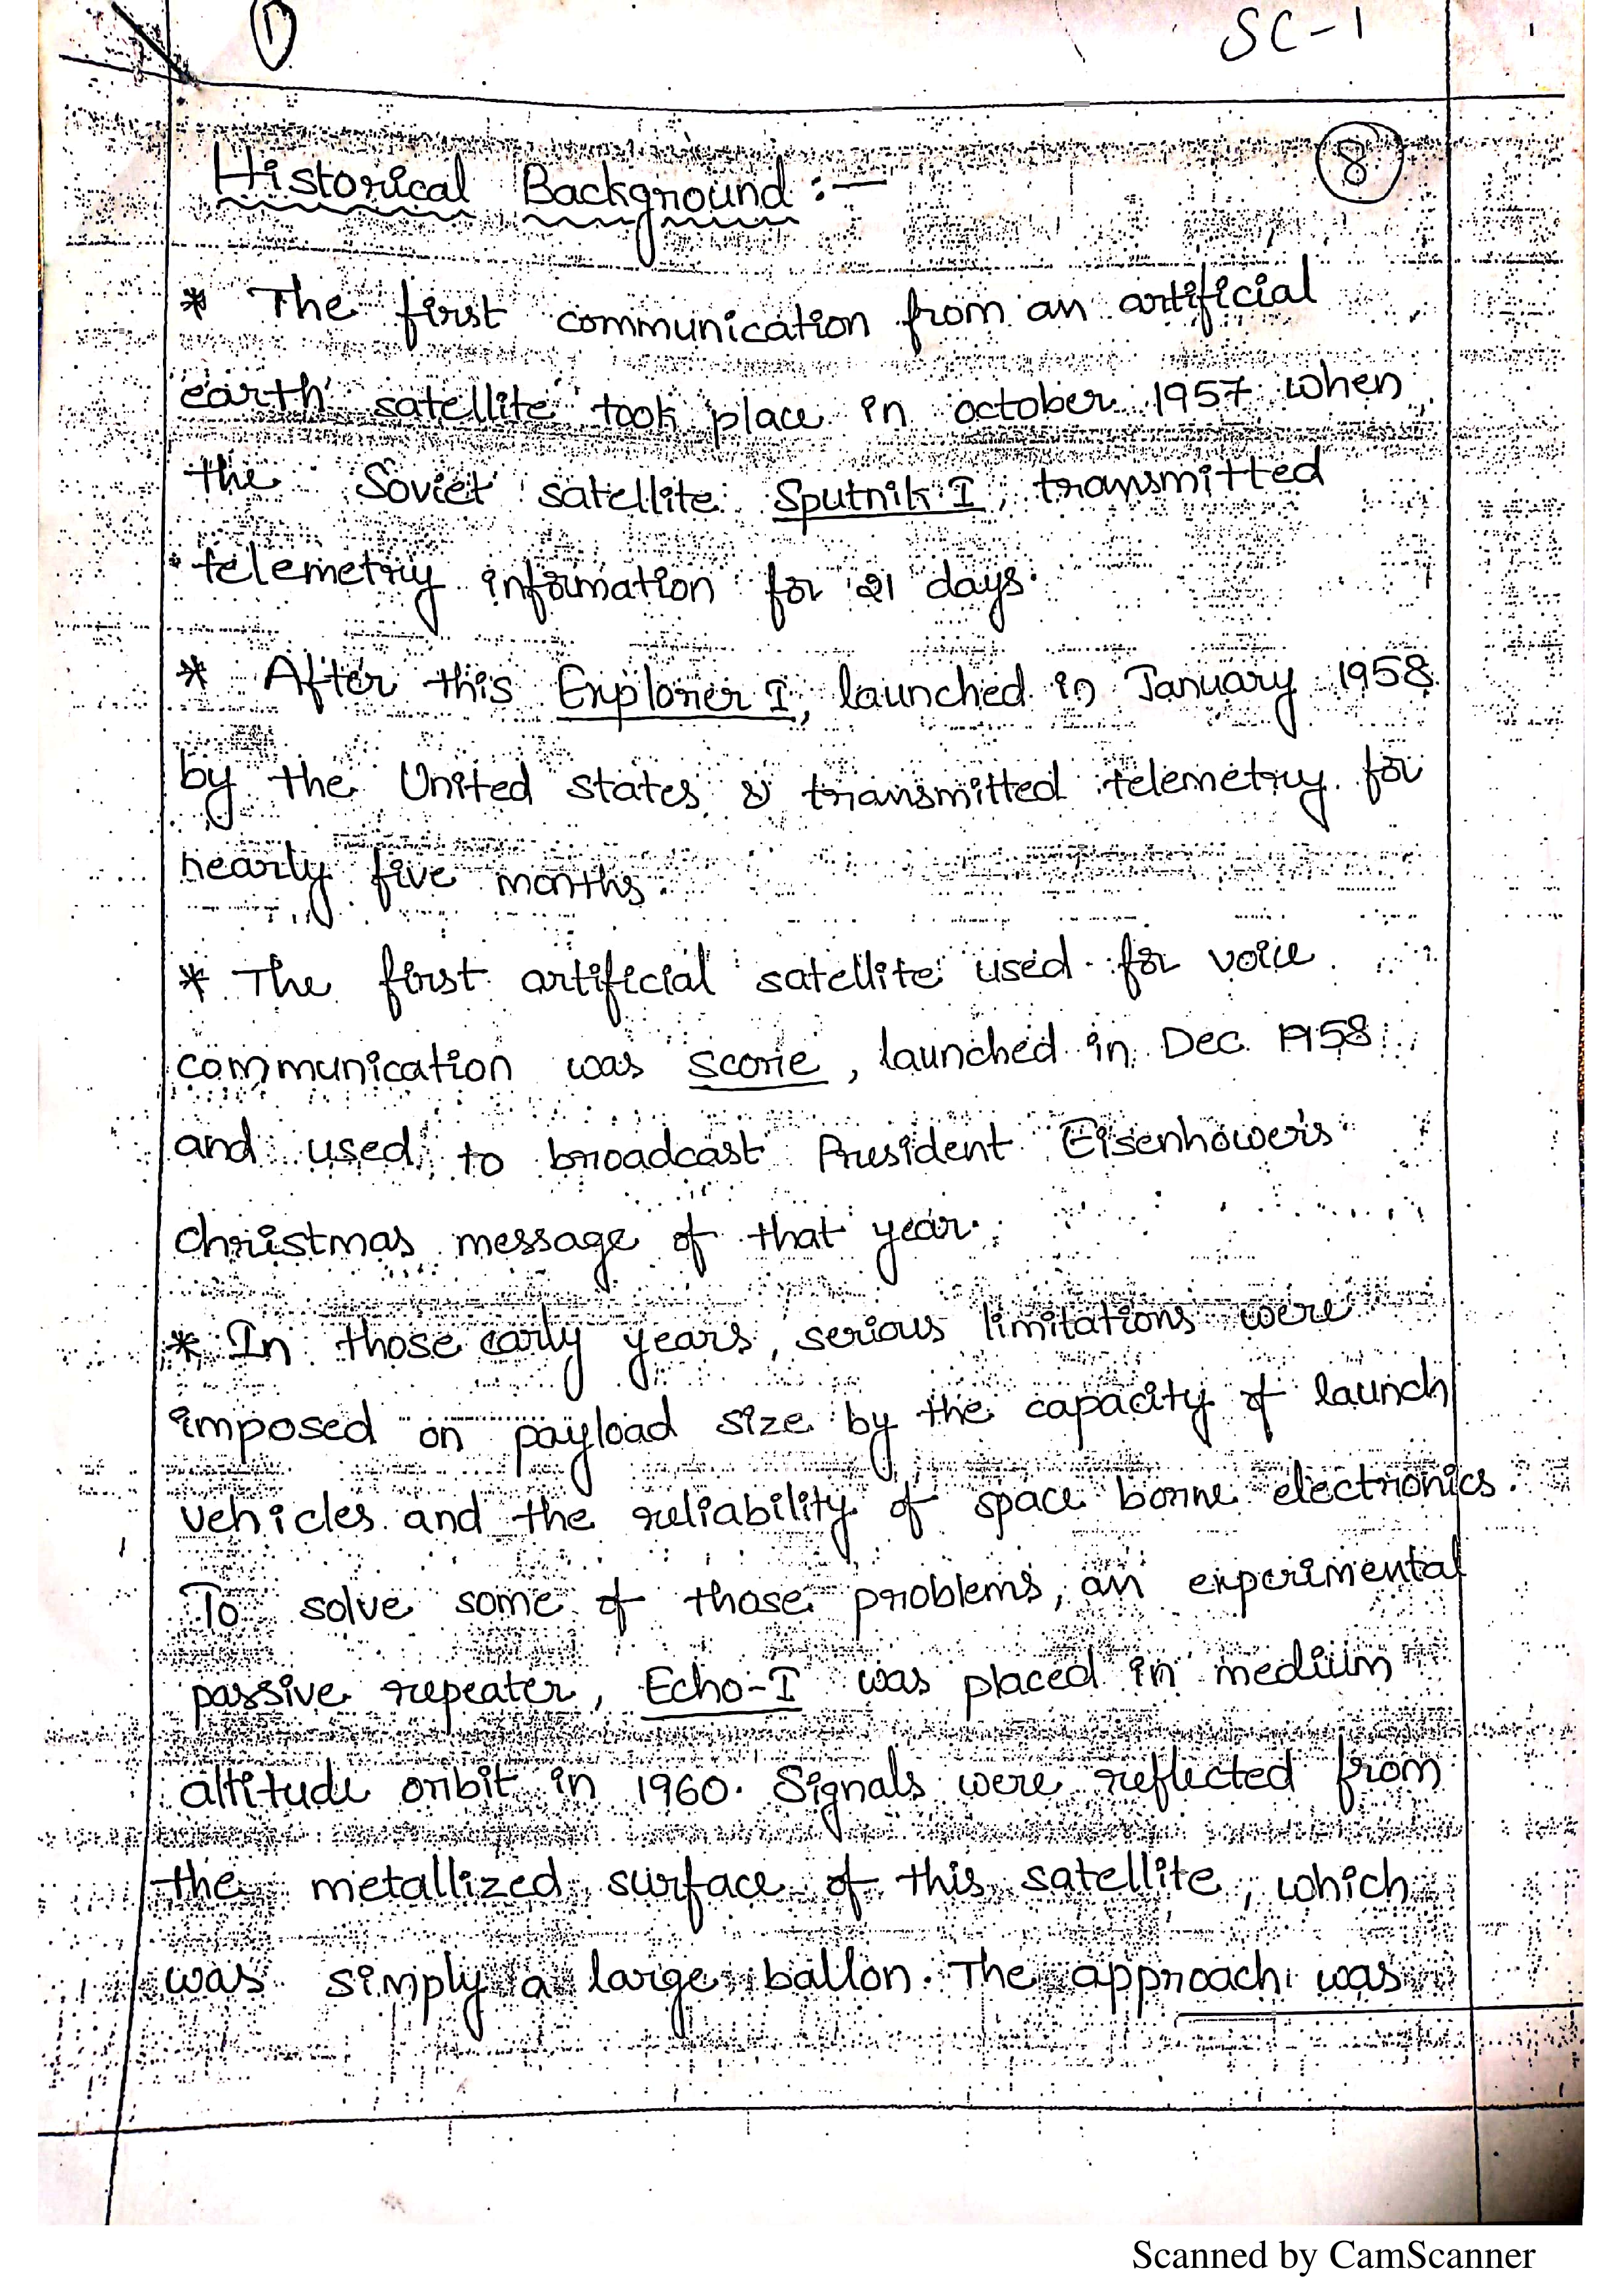 1
SC-1
8
Historical Background :-
* The first communication from an artificial
earth satellite took place in october 1957 when
the Soviet satellite Sputnik I, transmitted
telemetry information for 21 days.
* After this Explorer I, launched in January 1958
by the United states & transmitted telemetry for
nearly five months.
* The first artificial satellite used for voice
communication was score, launched in Dec. 1958
and used to broadcast President Eisenhower's
christmas message of that year.
* In those early years, serious limitations were
imposed on payload size by the capacity of launch
vehicles and the reliability of space borne electronics.
To solve some of those problems, an experimental
passive repeater, Echo-I was placed in medium
altitude orbit in 1960. Signals were reflected from
the metallized surface of this satellite, which
was simply a large ballon. The approach was
Scanned by CamScanner